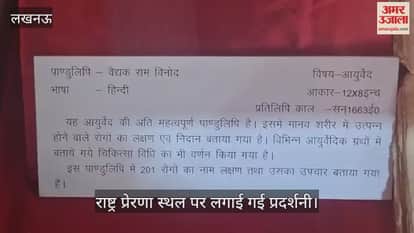 लखनऊ
अमर उजाला
amarujala.com
पाण्डुलिपि - वैद्यक राम विनोद
विषय-आयुर्वेद
भाषा - हिन्दी
आकार-12X8इन्च
प्रतिलिपि काल -सन1663ई0
यह आयुर्वेद की अति महत्वपूर्ण पाण्डुलिपि है। इसमें मानव शरीर में उत्पन्न
होने वाले रोगों का लक्षण एवं निदान बताया गया है। विभिन्न आयुर्वेदिक ग्रंथों में
बताये गये चिकित्सा विधि का भी वर्णन किया गया है।
इस पाण्डुलिपि में 201 रोगों का नाम लक्षण तथा उसका उपचार बताया गया
है।
राष्ट्र प्रेरणा स्थल पर लगाई गई प्रदर्शनी।